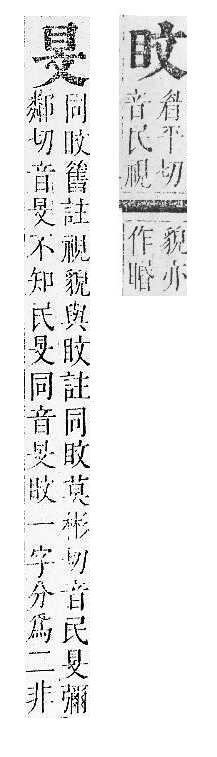 盿
睂平切
音民視
貌亦
作睧
旻
同盿舊註視貌與盿註同盿莫彬切音民旻彌
鄰切音旻不知民旻同音旻盿一字分爲二非